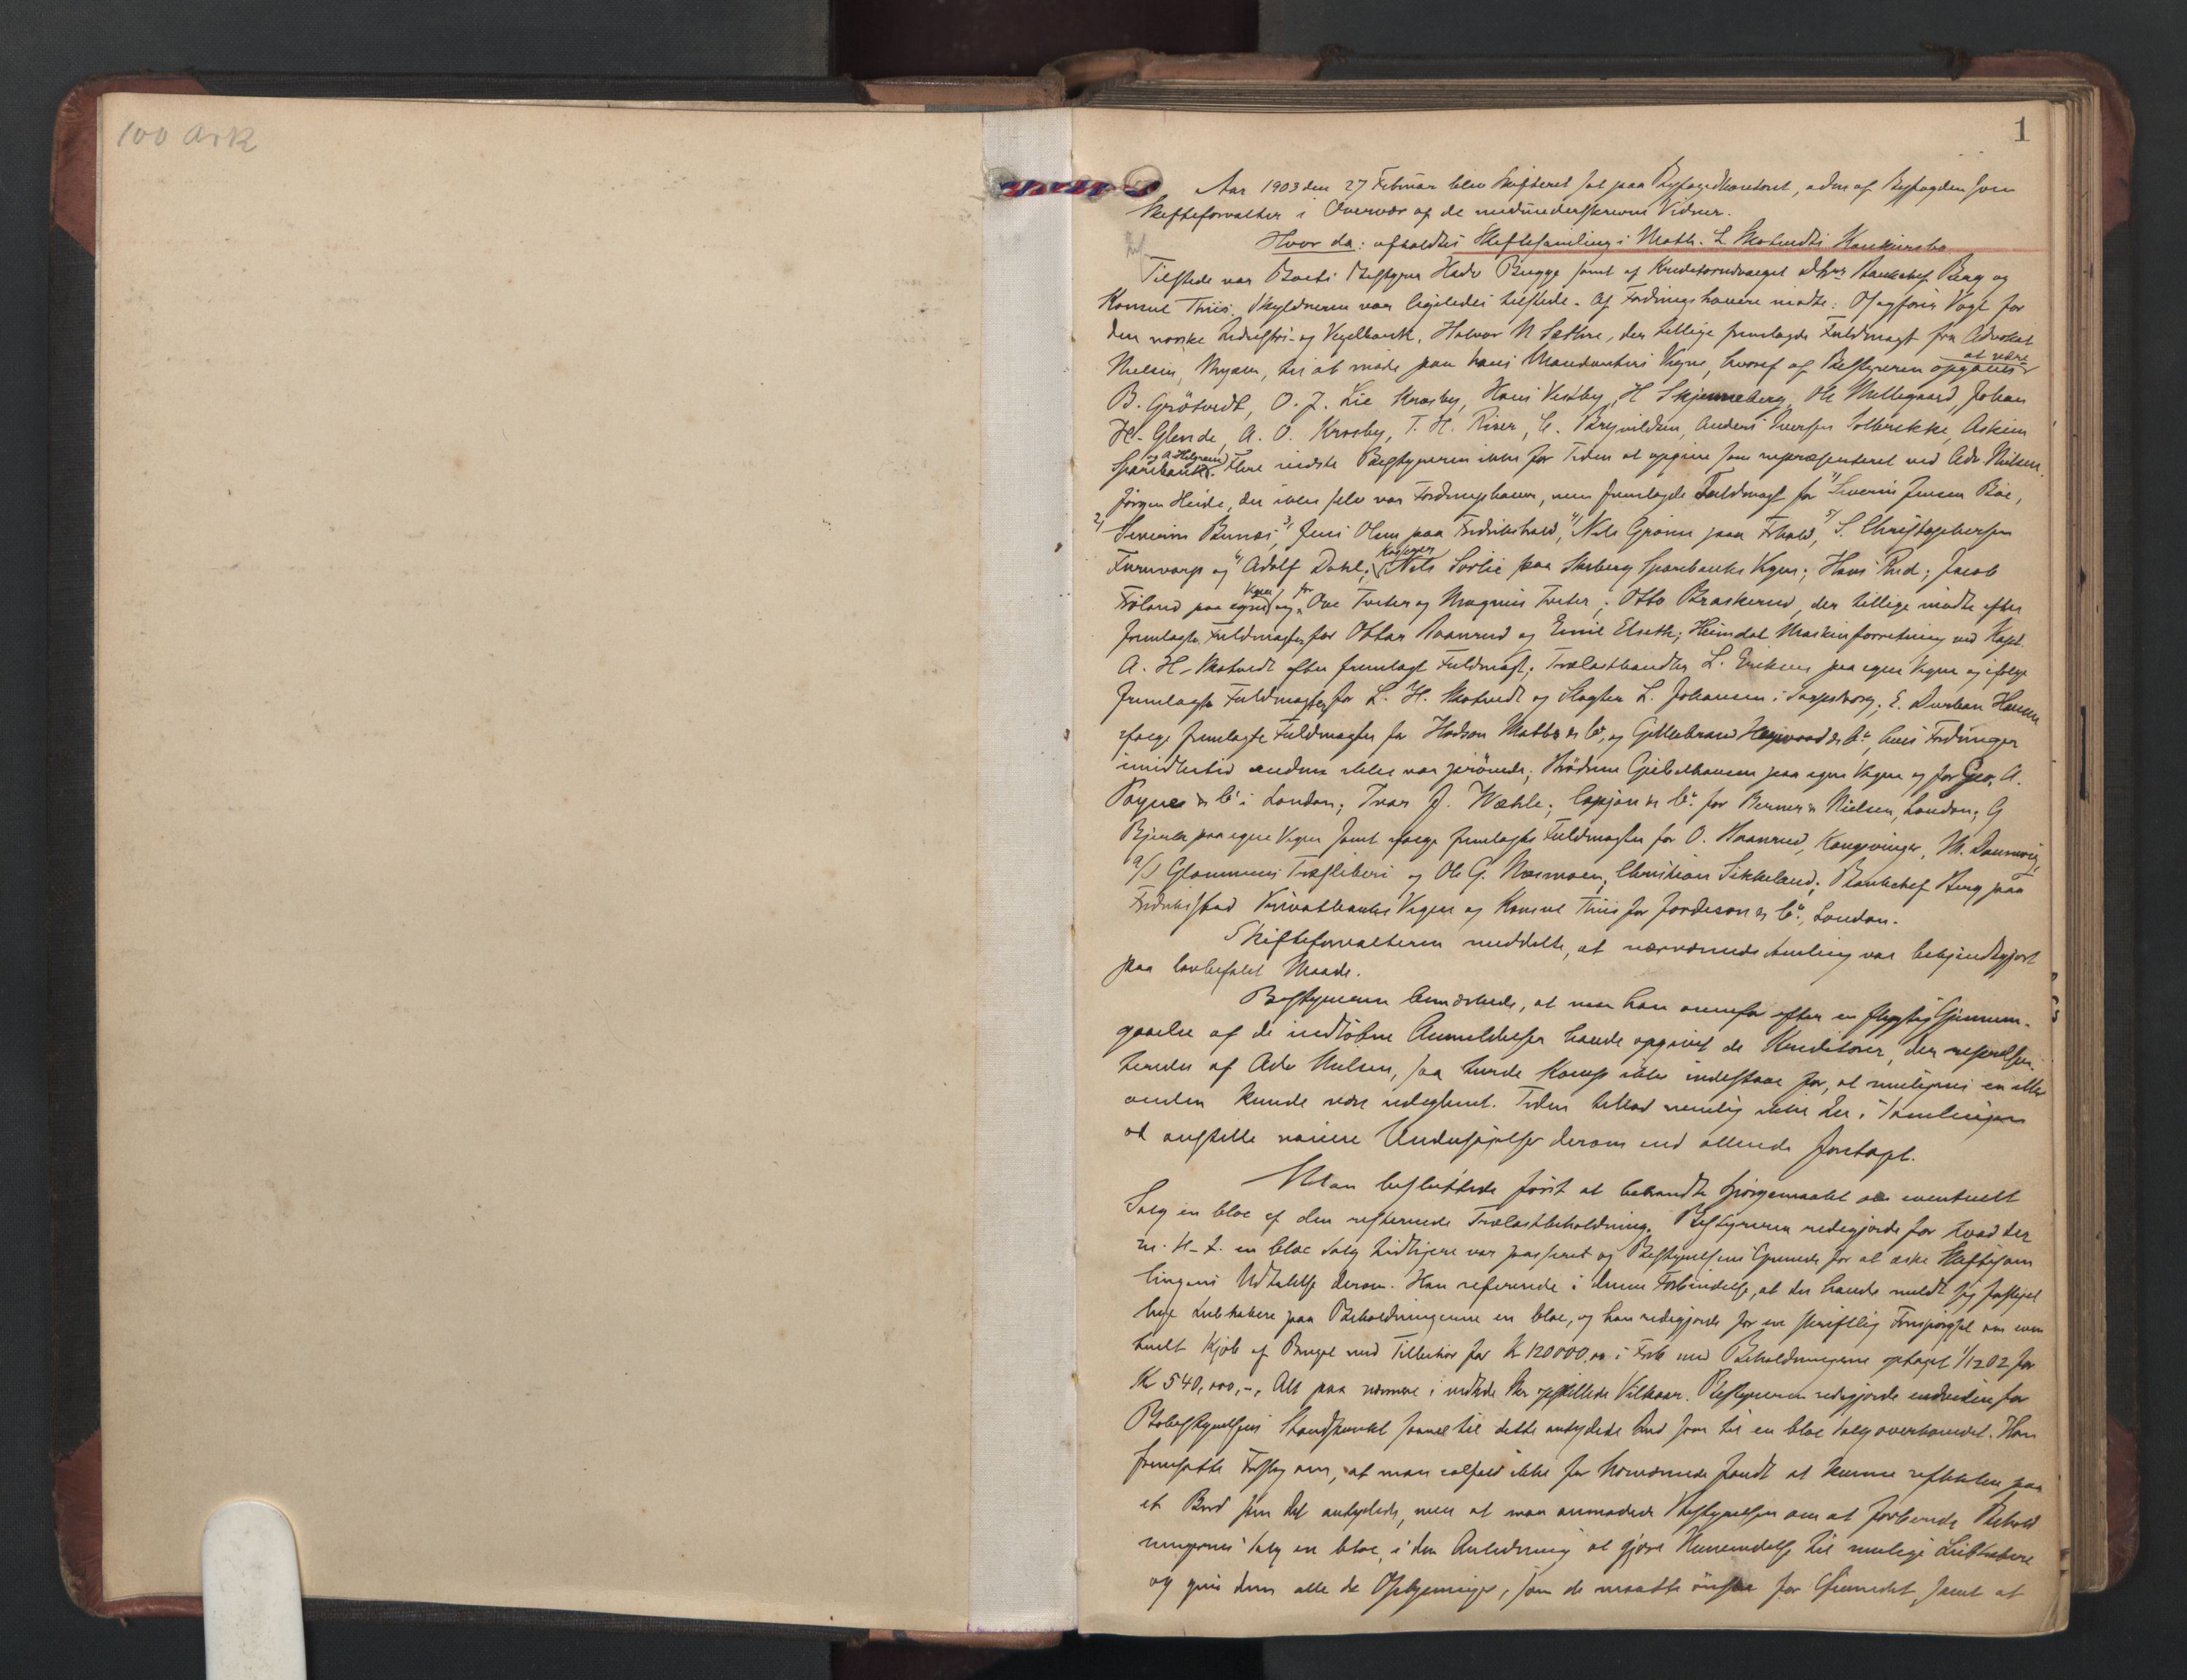 100 Ark
1
Aar 1903 den 27 Februar blev Skifteret sat paa Byfogedkontoret, adm. af Byfogden som
Skifteforvalter i Overvær af de medunderskrevne Vidner.
Hvor da: afholdtes Skiftesamling i Math. L Skotvedts Konkursbo
Tilstede var Boets Bestyrer Hadv Bugge samt af Kreditorudvalget Bankchef Berg og
Konsul Thiis. Skyldneren var ligeledes tilstede. Af Fordringshavere mødte: Sagfører Vogt for
den norske Industri- og Vexelbank, Halvor N Sæthre, der tillige fremlagde Fuldmagt fra Advokat
Nielsen, Mysen, til at møde paa hans Mandanters Vegne, hvoraf af Bestyreren opgaves at være
B. Grötvedt, O. J. Lie Krosby, Hans Vestby, H Skjenneberg, Ole Mellegaard, Johan
H. Glende, A. O. Krosby, T. H. Riser, C. Brynildsen, Anders Iversen Solbrekke, Askim
Sparebank og A. Flere vidste Bestyreren ikke for Tiden at opgive som repræsenteret ved Adv Nielsen.
Jörgen Heide, der ikke selv var Fordringshaver, men fremlagde Fuldmagt for 1/ Severin Jensen Böe,
2/ Severin Bunæs, 3/ Jens Olsen paa Fredrikshald, 4/ Nils Grönn paa Fhald, 5/ S. Christophersen
Furuvarp og 6/ Adolf Dahl; Kasserer Nils Sørlie paa Skiberg Sparebanks Vegne; Hans Rud; Jacob
Fröland paa egne Vegne og for Ove Tveter og Magnus Tveter; Otto Braskerud, der tillige mødte efter
fremlagte Fuldmagter for Ottar Haanrud og Emil Elseth; Heimdal Maskinforretning ved Kapt.
A. H. Skotvedt efter fremlagt Fuldmagt; Trælasthandler L. Eriksen paa egne Vegne og ifølge
fremlagte Fuldmagter for L. H. Skotvedt og Slagter L. Johansen i Sarpsborg; E. Durban Hansen
ifølge fremlagte Fuldmagter for Hodson Mabbs & Co, og Gillebrand Heywood & Co, hvis Fordringer
imidlertid endnu ikke var prövede; Brödrene Gjelsthausen paa egne Vegne og for Geo. A.
Paynes & Co i London; Ivar J. Wæhle; Copjon & Co. for Berner & Nielsen, London; G
Bjerke paa egne Vegne samt ifølge fremlagte Fuldmagter for O. Haanrud, Kongsvinger, M.
A/S Glommens Træsliberi og Ole G. Næsmoen, Christian Sikkeland; Bankchef Berg paa
Fredriksstad Privatbanks Vegne og Konsul Thiis for Jordeson & Co., London.
Skifteforvalteren meddelte, at nærværende Samling var bekjendtgjort
paa lovbefalet Maade.
Bestyreren bemærkede, at naar han ovenfor efter en flygtig Gjennem-
gaaelse af de indløbne Anmeldelser havde opgivet de Kreditorer, der repræsen-
teredes af Adv Nielsen, saa turde Komp ikke indestaae for, at muligens en eller
anden kunde være udeglemt. Tiden tillod nemlig ikke her i Samlingen
at anstille nøiere Undersøgelser derom end allerede foretaget.
Man besluttede først at behandle Spørgsmaalet om eventuelt
Salg en bloc af den resterende Trælastbeholdning. Bestyreren redegjorde for hvad der
m. H. t. en bloc Salg tidligere var passeret og Bestyrelsens Grunde for at æske Skiftesam
lingens Udtalelse derom. Han refererede i denne Forbindelse, at der havde meldt sig forskjel
lige Liebhabere paa Beholdningerne en bloc, og han redegjorde for en skriftlig Forespørgsel om even
tuelt Kjøb af Bruget med Tilbehør for Kr 120000,00 i Forb. med Beholdningerne optaget 1/12 02 for
Kr 540,000,-, Alt paa nærmere i opstillede Vilkaar. Bestyreren redegjorde endvidere for
Bobestyrelsens Standpunkt saavel til dette antydede Bud som til en bloc Salg overhovedet. Han
fremsatte Forslag om, at man ialfald ikke for Nærværende fandt at kunne reflektere paa
et Bud som det antydede, men at man anmodede Bestyrelsen om at forberede Behold
ningernes Salg en bloc, i den Anledning at gjøre Henvendelse til mulige Liebhabere
og give dem alle de Oplysninger, som de maatte ønske for Øiemedet, samt at